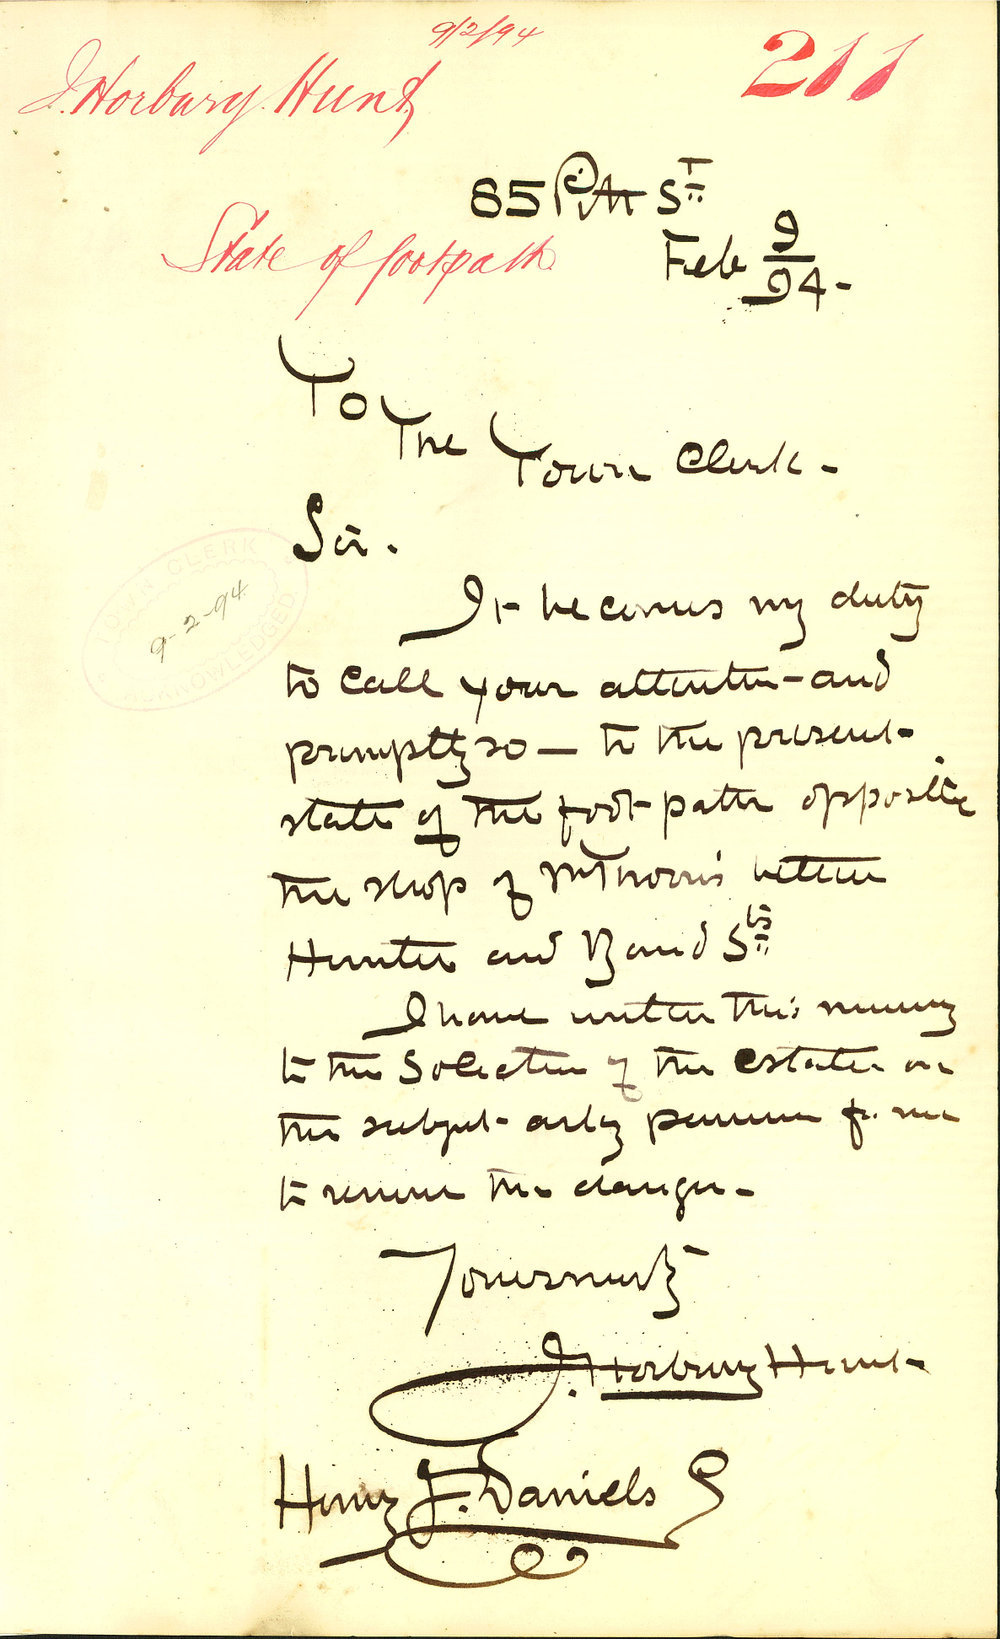 9/2/94
J. Horbury Hunt,
211
85 Pitt St
State of footpath
Feb 9/94-
To The Town Clerk-
Sir.
TOWN CLERK
9-2-94
ACKNOWLEDGED
It becomes my duty
to call your attention - and
promptly so — to the present
state of the foot-path opposite
the shop of between
Hunter and Bond Sts
I have written this morning
to the Solicitor of the estate on
the subject - asking permission for me
to remove the danger-
Yours
J. Horbury Hunt-
Henry F. Daniels Esq